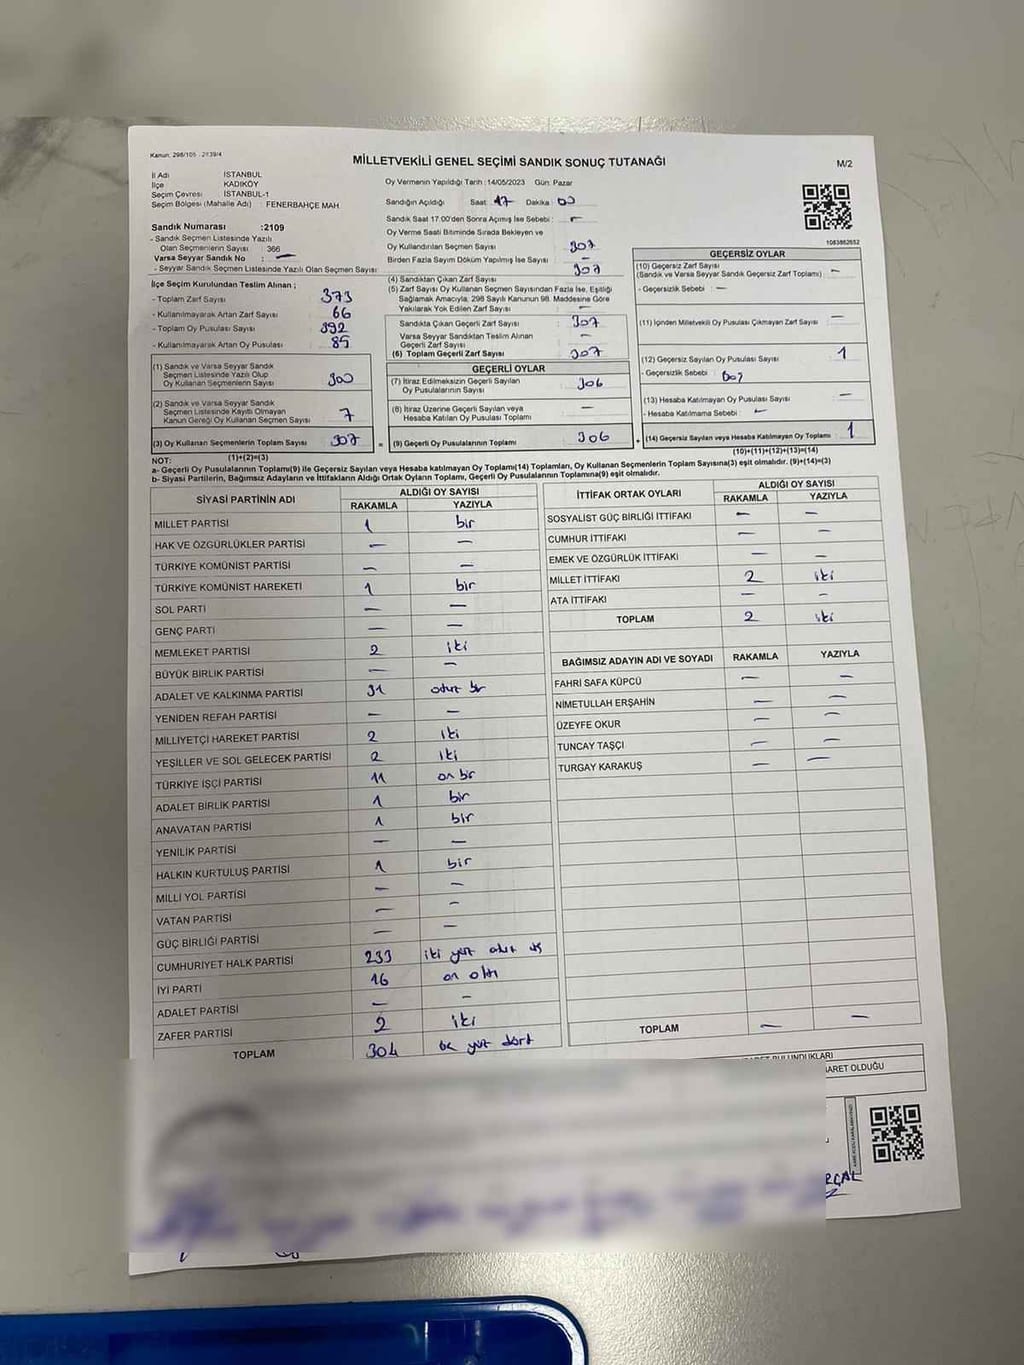 Kanun: 298/105 - 2839/4
MİLLETVEKİLİ GENEL SEÇİMİ SANDIK SONUÇ TUTANAĞI
M/2
İl Adı İSTANBUL
İlçe KADIKÖY
Seçim Çevresi İSTANBUL-1
Seçim Bölgesi (Mahalle Adı) : FENERBAHÇE MAH
Oy Vermenin Yapıldığı Tarih : 14/05/2023 Gün: Pazar
Sandığın Açıldığı Saat : 17 Dakika : 00
Sandık Saat 17.00'den Sonra Açılmış İse Sebebi : –
Oy Verme Saati Bitiminde Sırada Bekleyen ve
Oy Kullandırılan Seçmen Sayısı 307
Birden Fazla Sayım Döküm Yapılmış İse Sayısı : –
1083862652
Sandık Numarası :2109
- Sandık Seçmen Listesinde Yazılı
Olan Seçmenlerin Sayısı : 366
Varsa Seyyar Sandık No : –
- Seyyar Sandık Seçmen Listesinde Yazılı Olan Seçmen Sayısı
İlçe Seçim Kurulundan Teslim Alınan ;
- Toplam Zarf Sayısı 373
- Kullanılmayarak Artan Zarf Sayısı : 66
- Toplam Oy Pusulası Sayısı : 392
- Kullanılmayarak Artan Oy Pusulası : 85
(1) Sandık ve Varsa Seyyar Sandık
Seçmen Listesinde Yazılı Olup
Oy Kullanan Seçmenlerin Sayısı 300
(2) Sandık ve Varsa Seyyar Sandık
Seçmen Listesinde Kayıtlı Olmayan
Kanun Gereği Oy Kullanan Seçmen Sayısı 7
(3) Oy Kullanan Seçmenlerin Toplam Sayısı 307
(1)+(2)=(3)
(4) Sandıktan Çıkan Zarf Sayısı 307
(5) Zarf Sayısı Oy Kullanan Seçmen Sayısından Fazla İse, Eşitliği
Sağlamak Amacıyla, 298 Sayılı Kanunun 98. Maddesine Göre
Yakılarak Yok Edilen Zarf Sayısı –
Sandıkta Çıkan Geçerli Zarf Sayısı : 307
Varsa Seyyar Sandıktan Teslim Alınan
Geçerli Zarf Sayısı : –
(6) Toplam Geçerli Zarf Sayısı : 307
GEÇERLİ OYLAR
(7) İtiraz Edilmeksizin Geçerli Sayılan
Oy Pusulalarının Sayısı : 306
(8) İtiraz Üzerine Geçerli Sayılan veya
Hesaba Katılan Oy Pusulası Toplamı –
= (9) Geçerli Oy Pusulalarının Toplamı 306
GEÇERSİZ OYLAR
(10) Geçersiz Zarf Sayısı
(Sandık ve Varsa Seyyar Sandık Geçersiz Zarf Toplamı) : –
- Geçersizlik Sebebi : –
(11) İçinden Milletvekili Oy Pusulası Çıkmayan Zarf Sayısı –
(12) Geçersiz Sayılan Oy Pusulası Sayısı 1
- Geçersizlik Sebebi : Boş
(13) Hesaba Katılmayan Oy Pusulası Sayısı –
- Hesaba Katılmama Sebebi : –
+ (14) Geçersiz Sayılan veya Hesaba Katılmayan Oy Toplamı : 1
(10)+(11)+(12)+(13)=(14)
NOT:
a- Geçerli Oy Pusulalarının Toplamı(9) ile Geçersiz Sayılan veya Hesaba katılmayan Oy Toplamı(14) Toplamları, Oy Kullanan Seçmenlerin Toplam Sayısına(3) eşit olmalıdır. (9)+(14)=(3)
b- Siyasi Partilerin, Bağımsız Adayların ve İttifakların Aldığı Ortak Oyların Toplamı, Geçerli Oy Pusulalarının Toplamına(9) eşit olmalıdır.
SİYASİ PARTİNİN ADI ALDIĞI OY SAYISI
RAKAMLA YAZIYLA
MİLLET PARTİSİ 1 bir
HAK VE ÖZGÜRLÜKLER PARTİSİ – –
TÜRKİYE KOMÜNİST PARTİSİ – –
TÜRKİYE KOMÜNİST HAREKETİ 1 bir
SOL PARTİ – –
GENÇ PARTİ – –
MEMLEKET PARTİSİ 2 iki
BÜYÜK BİRLİK PARTİSİ – –
ADALET VE KALKINMA PARTİSİ 31 otuz bir
YENİDEN REFAH PARTİSİ – –
MİLLİYETÇİ HAREKET PARTİSİ 2 iki
YEŞİLLER VE SOL GELECEK PARTİSİ 2 iki
TÜRKİYE İŞÇİ PARTİSİ 11 on bir
ADALET BİRLİK PARTİSİ 1 bir
ANAVATAN PARTİSİ 1 bir
YENİLİK PARTİSİ – –
HALKIN KURTULUŞ PARTİSİ 1 bir
MİLLİ YOL PARTİSİ – –
VATAN PARTİSİ – –
GÜÇ BİRLİĞİ PARTİSİ – –
CUMHURİYET HALK PARTİSİ 233 iki yüz otuz üç
İYİ PARTİ 16 on altı
ADALET PARTİSİ – –
ZAFER PARTİSİ 2 iki
TOPLAM 304 üç yüz dört
İTTİFAK ORTAK OYLARI ALDIĞI OY SAYISI
RAKAMLA YAZIYLA
SOSYALİST GÜÇ BİRLİĞİ İTTİFAKI – –
CUMHUR İTTİFAKI – –
EMEK VE ÖZGÜRLÜK İTTİFAKI – –
MİLLET İTTİFAKI 2 iki
ATA İTTİFAKI – –
TOPLAM 2 iki
BAĞIMSIZ ADAYIN ADI VE SOYADI RAKAMLA YAZIYLA
FAHRİ SAFA KÜPCÜ – –
NİMETULLAH ERŞAHİN – –
ÜZEYFE OKUR – –
TUNCAY TAŞÇI – –
TURGAY KARAKUŞ – –
TOPLAM – –
BULUNDUKLARI
ARET OLDUĞU